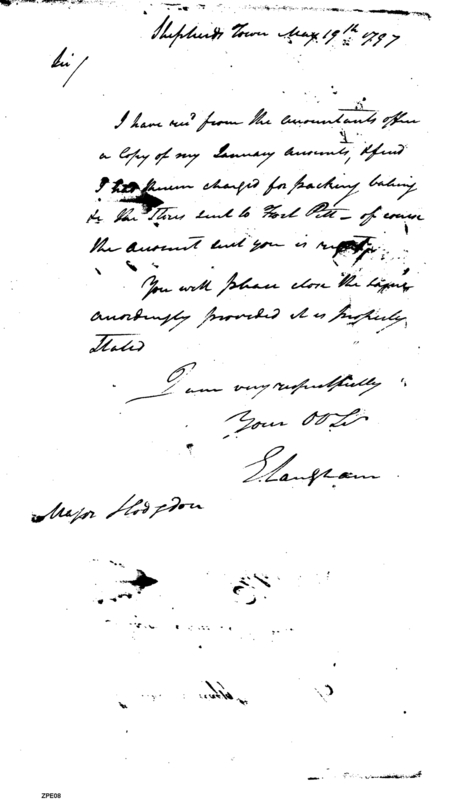 Shepherds Town May 19th 1797
Sir/
I have recd from the accountants office
a Copy of my January accounts, & find
I had them charged for packing baling
&c the Stores sent to Fort Pitt – of course
the account sent you is
You will please close the
accordingly provided it is properly
Stated
I am very respectfully
Your O S
E Langham
Major Hodgdon
ZPE08